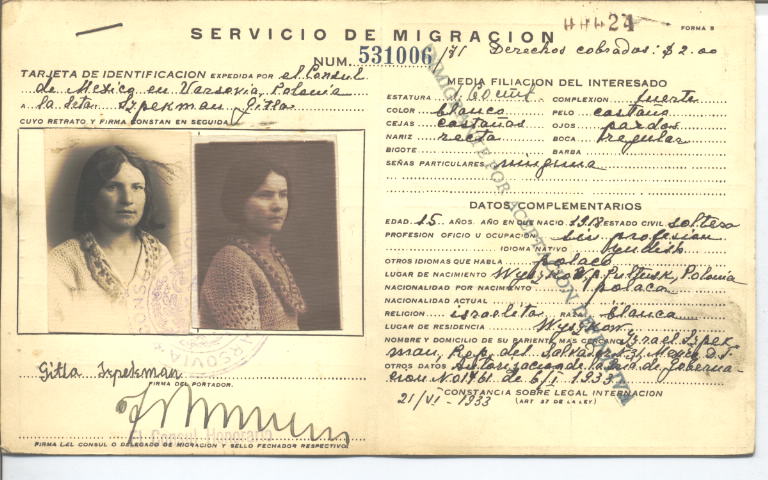 SERVICIO DE MIGRACION
00624
FORMA 5
NUM. 531006 / 71 Derechos cobrados: $ 2.00
TARJETA DE IDENTIFICACION EXPEDIDA POR el Consul
de Mexico en Varsovia, Polonia
A la Srta. Szpekman Gitla
CUYO RETRATO Y FIRMA CONSTAN EN SEGUIDA
Gitla Szpekman
FIRMA DEL PORTADOR.
El Consul Honorario
FIRMA DEL CONSUL O DELEGADO DE MIGRACION Y SELLO FECHADOR RESPECTIVO.
MEDIA FILIACION DEL INTERESADO
ESTATURA COMPLEXION fuerte
COLOR blanco PELO castaño
CEJAS castañas OJOS pardos
NARIZ recta BOCA regular
BIGOTE BARBA
SEÑAS PARTICULARES ninguna
DATOS COMPLEMENTARIOS
EDAD 15 AÑOS. AÑO EN QUE NACIO 1918 ESTADO CIVIL soltera
PROFESION OFICIO U OCUPACION sin profesion
IDIOMA NATIVO Yundish
OTROS IDIOMAS QUE HABLA polaco
LUGAR DE NACIMIENTO Wyszkow, p. Pultusk, Polonia
NACIONALIDAD POR NACIMIENTO polaca
NACIONALIDAD ACTUAL
RELIGION israelita RAZA blanca
LUGAR DE RESIDENCIA Wyszkow
NOMBRE Y DOMICILIO DE SU PARIENTE MAS CERCANO Izrael Szpek
man, Rep. del Salvador 31, Mexico D.F.
OTROS DATOS Autorizacion de la Sria de Goberna
cion No 1461 de 6/I 1933
CONSTANCIA SOBRE LEGAL INTERNACION
21/VI - 1933 (ART 27 DE LA LEY)